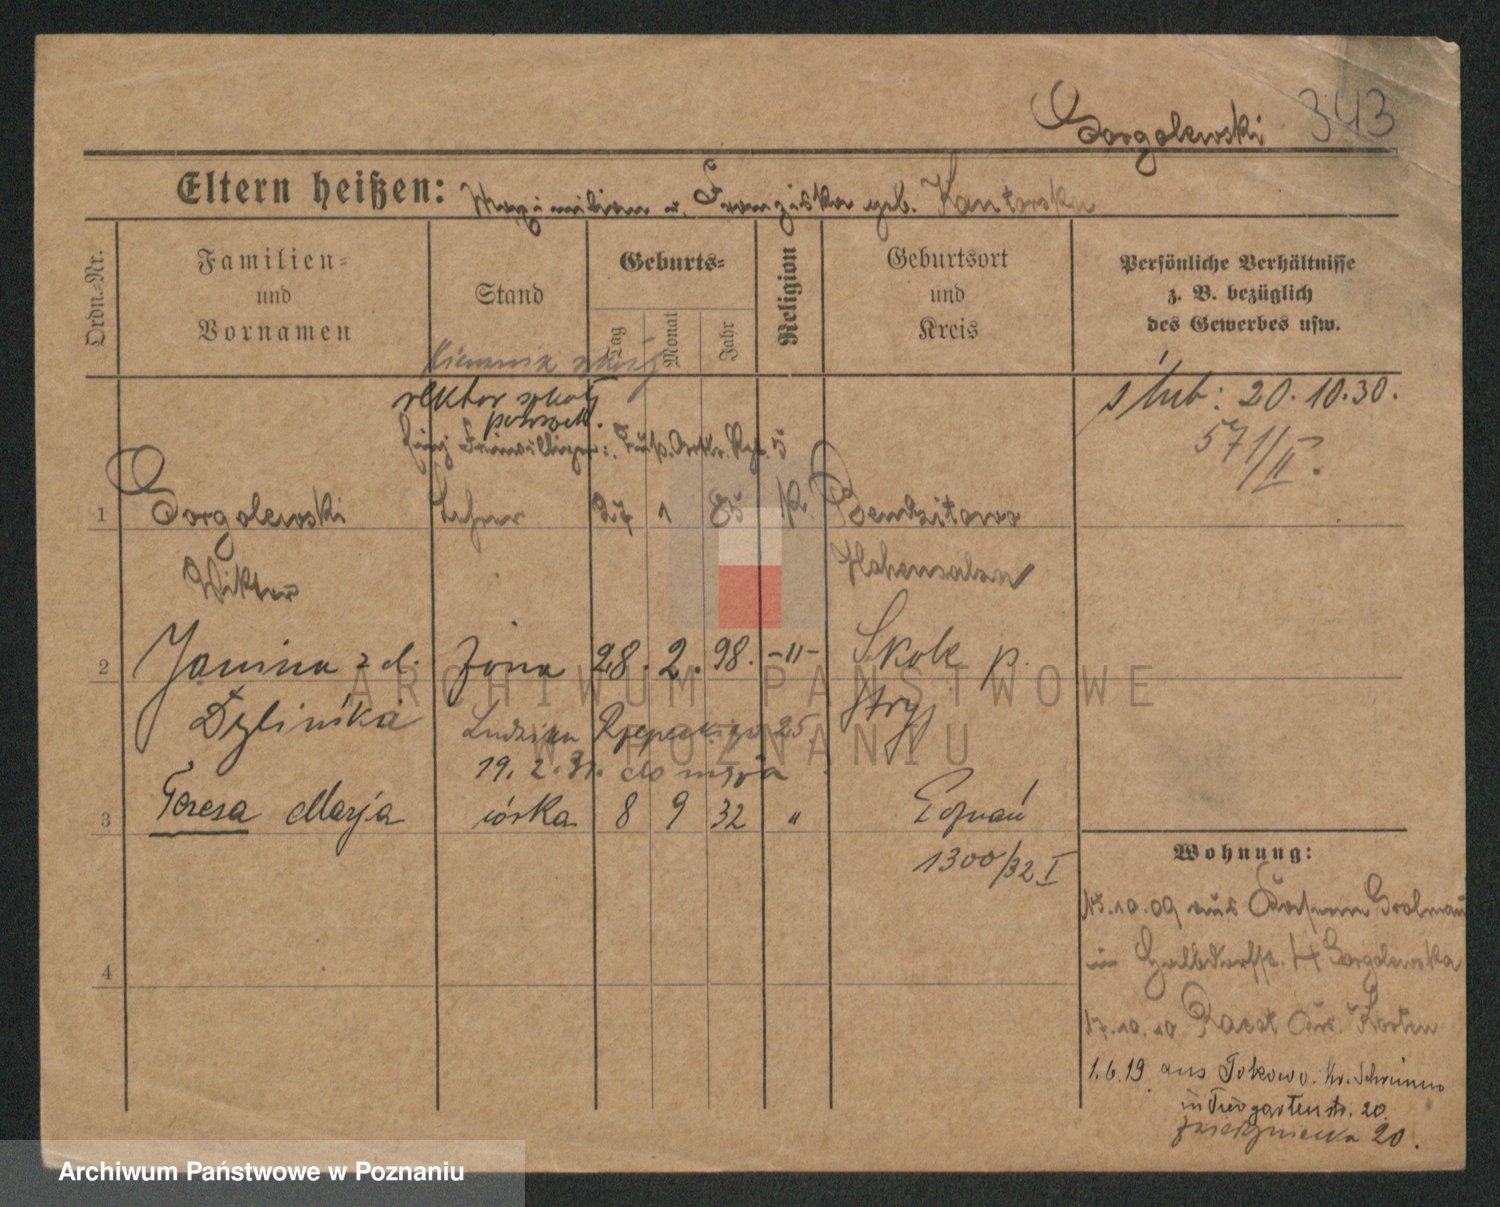 Gorgolewski 343
Eltern heißen: Maximilian u. Franziska geb. Kantorska
Ordn.-Nr.
Familien-
und
Vornamen
Stand
Geburts-
Tag
Monat
Jahr
Religion
Geburtsort
und
Kreis
Persönliche Verhältnisse
z. B. bezüglich
des Gewerbes usw.
Kierownik szkoły
rektor szkoły
powszech.
Einj. Freiwilliger
ślub: 20.10.30.
571/II.
1 Gorgolewski Lehrer 1 85 K. Bendzitowo
Wiktor Hohensalza
2 Janina z d. żona 28. 2. 98. -"- Skole p.
Dylińska Stryj
Ludwika Rzepeckiego 25.
19. 2. 31. do męża
3 Teresa Marja córka 8 9 32 " Poznań
1300/32 I
Wohnung:
15.10.09 aus Grolman
in Halbdorfstr. 14 Gorgolewska
17.10.10 Racot Krs. Kosten
1.6.19. aus Kr. Schrimm
in Tiergartenstr. 20.
Zwierzyniecka 20.
4
ARCHIWUM PAŃSTWOWE
W POZNANIU
Archiwum Państwowe w Poznaniu